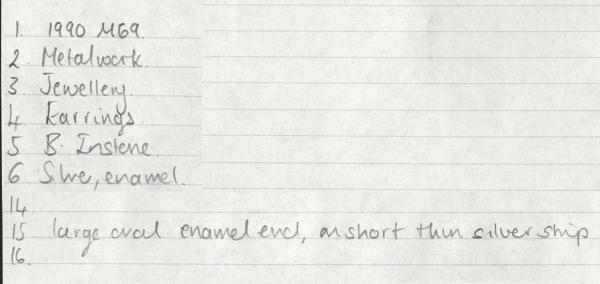 1. 1990 M69.
2. Metalwork.
3 Jewellery.
4 Earrings.
5 B. Instone.
6 Silver, enamel.
14
15 large oval enamel end, on short thin silver strip
16.